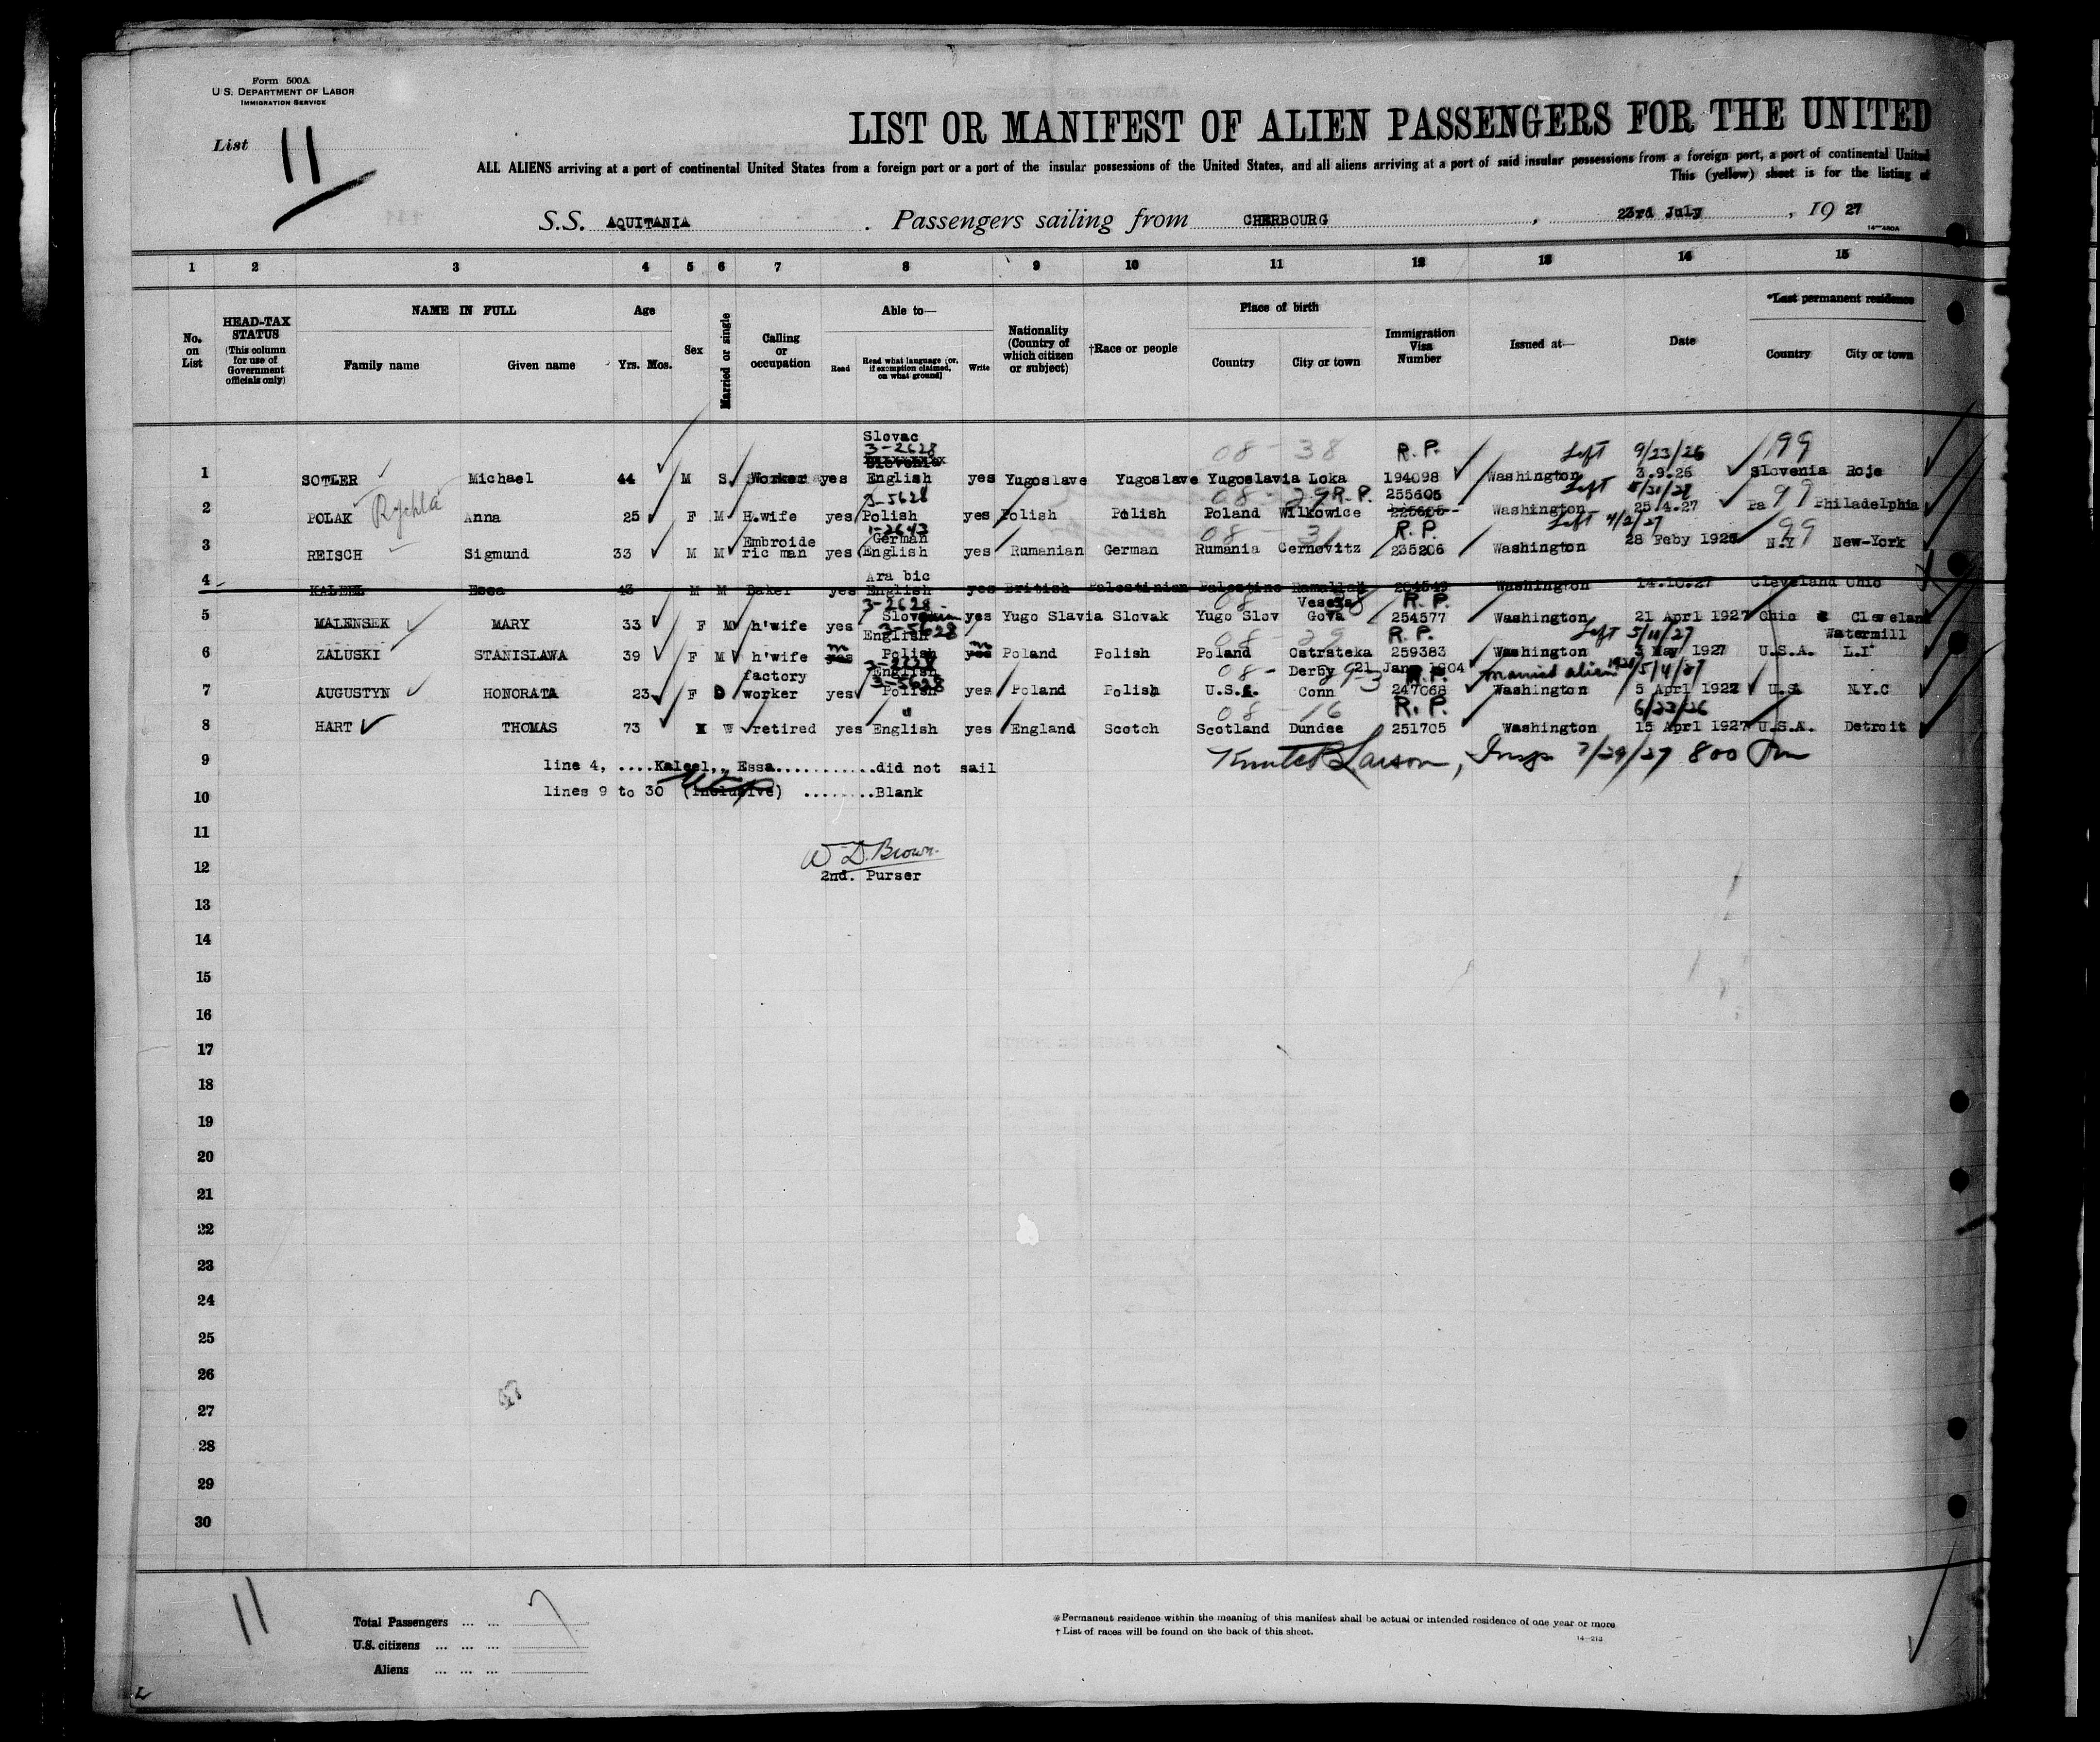 Form 500A
U.S. DEPARTMENT OF LABOR
IMMIGRATION SERVICE
List 11
LIST OR MANIFEST OF ALIEN PASSENGERS FOR THE UNITED
ALL ALIENS arriving at a port of continental United States from a foreign port or a port of the insular possessions of the United States, and all aliens arriving at a port of said insular possessions from a foreign port, a port of continental United
This (yellow) sheet is for the listing of
S.S. AQUITANIA . Passengers sailing from CHERBOURG , 23rd July , 19 27
14—480A
1 2 3 4 5 6 7 8 9 10 11 12 13 14 15
No. on List
HEAD-TAX STATUS (This column for use of Government officials only)
NAME IN FULL
Family name Given name
Age
Yrs. Mos.
Sex
Married or single
Calling or occupation
Able to—
Read Read what language [or, if exemption claimed, on what ground] Write
Nationality (Country of which citizen or subject)
†Race or people
Place of birth
Country City or town
Immigration Visa Number
Issued at—
Date
*Last permanent residence
Country City or town
Slovac
3-2628 08-38 R.P. Left 9/23/26 99
1 SOTLER Michael 44 M S Worker yes English yes Yugoslave Yugoslave Yugoslavia Loka 194098 Washington 3.9.26 Slovenia Roje
3-5628 08-29 R.P. 255605 Left 5/21/27 99
2 POLAK Rychla Anna 25 F M H.wife yes Polish yes Polish Polish Poland Wilkowice 225605 Washington 25.4.27 Pa Philadelphia
1-2643 08-31 R.P. Left 4/2/27 99
Embroide German
3 REISCH Sigmund 33 M M ric man yes English yes Rumanian German Rumania Cernovitz 235206 Washington 28 Feby 1925 N.Y New-York
Ara bic
4 KALEEL Essa 43 M M Baker yes English yes British Palestinian Palestine Ramallah 204549 Washington 14.10.27 Cleveland Ohio
3-2628 08 R.P.
5 MALENSEK MARY 33 F M h'wife yes Slovenian yes Yugo Slavia Slovak Yugo Slov Gova 254577 Washington 21 Aprl 1927 Ohio Cleveland
English 3-5628 08-29 R.P. Left 5/11/27 Watermill
6 ZALUSKI STANISLAWA 39 F M h'wife yes Polish yes Poland Polish Poland Ostrateka 259383 Washington 3 May 1927 U.S.A. L.I
factory English 3-5628 08- Derby 21 Jany 1904 R.P. married alien 1921 5/4/27
7 AUGUSTYN HONORATA 23 F D worker yes Polish yes Poland Polish U.S.A. Conn 247068 Washington 5 Aprl 1922 U.S. N.Y.C
08-16 R.P. 6/23/26
8 HART THOMAS 73 M W retired yes English yes England Scotch Scotland Dundee 251705 Washington 15 Aprl 1927 U.S.A. Detroit
9 line 4, ....Kaleel,, Essa............did not sail
Knute B Larson, Insp 7/29/27 800 Pm
10 lines 9 to 30 (inclusive) ........Blank
11
W D. Brown
12
2nd. Purser
13
14
15
16
17
18
19
20
21
22
23
24
25
26
27
28
29
30
11
Total Passengers ... ... 7
U.S. citizens ... ... ...
Aliens ... ... ...
*Permanent residence within the meaning of this manifest shall be actual or intended residence of one year or more
† List of races will be found on the back of this sheet.
14—213